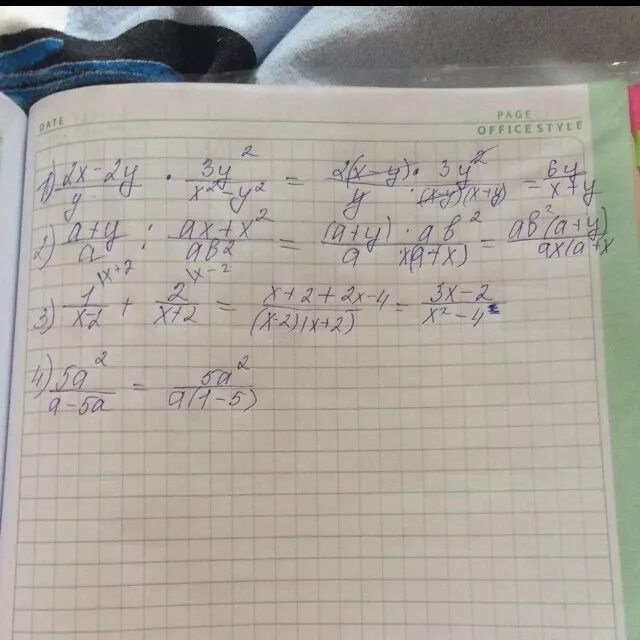 DATE
PAGE
OFFICE STYLE
1) (2x-2y)/y · 3y²/(x²-y²) = (2(x-y)·3y²)/(y·(x-y)(x+y)) = 6y/(x+y)
2) (a+y)/a : (ax+x²)/(ab²) = ((a+y)·ab²)/(a x(a+x)) = (ab²(a+y))/(ax(a+x
|x+2 |x-2
3) 1/(x-2) + 2/(x+2) = (x+2+2x-4)/((x-2)(x+2)) = (3x-2)/(x²-4)
4) 5a²/(a-5a) = 5a²/(a(1-5))